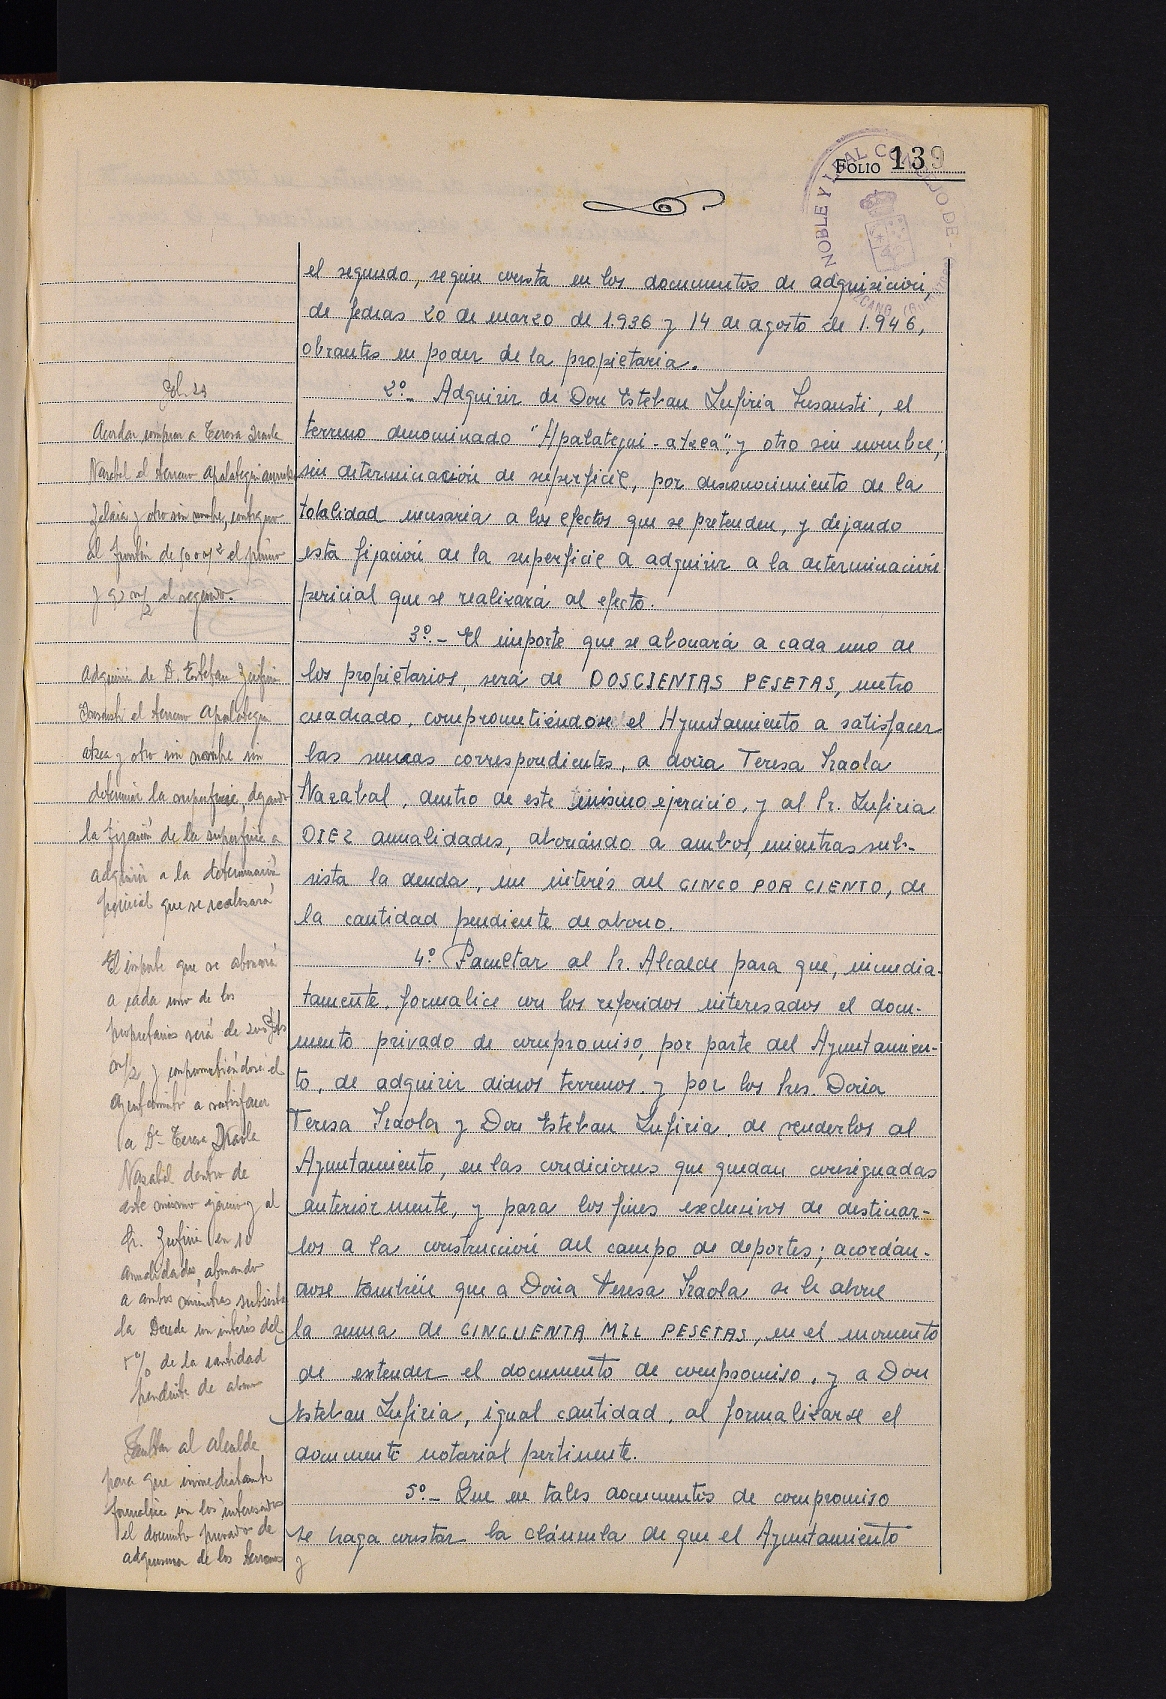 FOLIO 139
NOBLE Y LEAL CONCEJO DE
el segundo, según consta en los documentos de adquisición,
de fechas 20 de marzo de 1.936 y 14 de agosto de 1.946,
obrantes en poder de la propietaria.
2º.- Adquirir de Don Esteban Zufiria Susausti, el
terreno denominado "Apalategui-atzea", y otro sin nombre,
sin determinación de superficie, por desconocimiento de la
totalidad necesaria a los efectos que se pretenden, y dejando
esta fijación de la superficie a adquirir a la determinación
pericial que se realizará al efecto.
3º.- El importe que se abonará a cada uno de
los propietarios, será de DOSCIENTAS PESETAS, metro
cuadrado, comprometiéndose el Ayuntamiento a satisfacer
las sumas correspondientes, a doña Teresa Iraola
Nazabal, dentro de este mismo ejercicio, y al Sr. Zufiria
DIEZ anualidades, abonándo a ambos, mientras sub-
sista la deuda, un interés del CINCO POR CIENTO, de
la cantidad pendiente de abono.
4º. Facultar al Sr. Alcalde para que, inmedia-
tamente, formalice con los referidos interesados el docu-
mento privado de compromiso, por parte del Ayuntamien-
to, de adquirir dichos terrenos y por los Sres. Doña
Teresa Iraola y Don Esteban Zufiria, de venderlos al
Ayuntamiento, en las condiciones que quedan consignadas
anteriormente, y para los fines exclusivos de destinar-
los a la construcción del campo de deportes; acordán-
dose también que a Doña Teresa Iraola se le abone
la suma de CINCUENTA MIL PESETAS, en el momento
de extender el documento de compromiso, y a Don
Esteban Zufiria, igual cantidad, al formalizarse el
documento notarial pertinente.
5º.- Que en tales documentos de compromiso
se haga constar la cláusula de que el Ayuntamiento
Acordar comprar a Teresa Iraola
Nazabal el terreno Apalategui
Zelaia y otro sin nombre, contiguo
al frontón de 500 m/2 el primero
y 92 m/2 el segundo.
Adquirir de D. Esteban Zufiria
Susausti el terreno Apalategui
atzea y otro sin nombre sin
determinar la superficie, dejando
la fijación de la superficie a
adquirir a la determinación
pericial que se realizará
El importe que se abonará
a cada uno de los
propietarios será de 200 Pts
m/2 y comprometiéndose el
Ayuntamiento a satisfacer
a Dª Teresa Iraola
Nazabal dentro de
este mismo ejercicio y al
Sr. Zufiria en 10
anualidades, abonando
a ambos mientras subsista
la Deuda un interés del
5% de la cantidad
pendiente de abono
Facultar al alcalde
para que inmediatamente
formalice con los interesados
el documento privado de
adquisicion de los terrenos